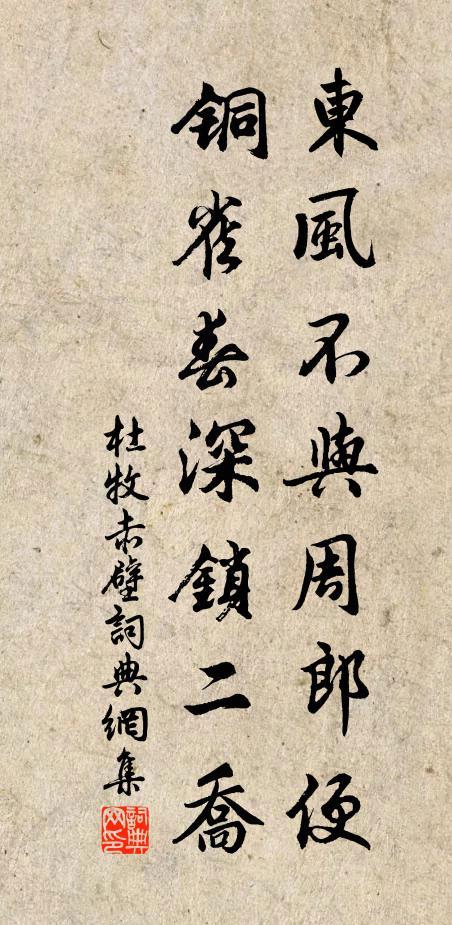 東風不與周郎便
銅雀春深鎖二喬
杜牧赤壁詞典網集
詞典網印